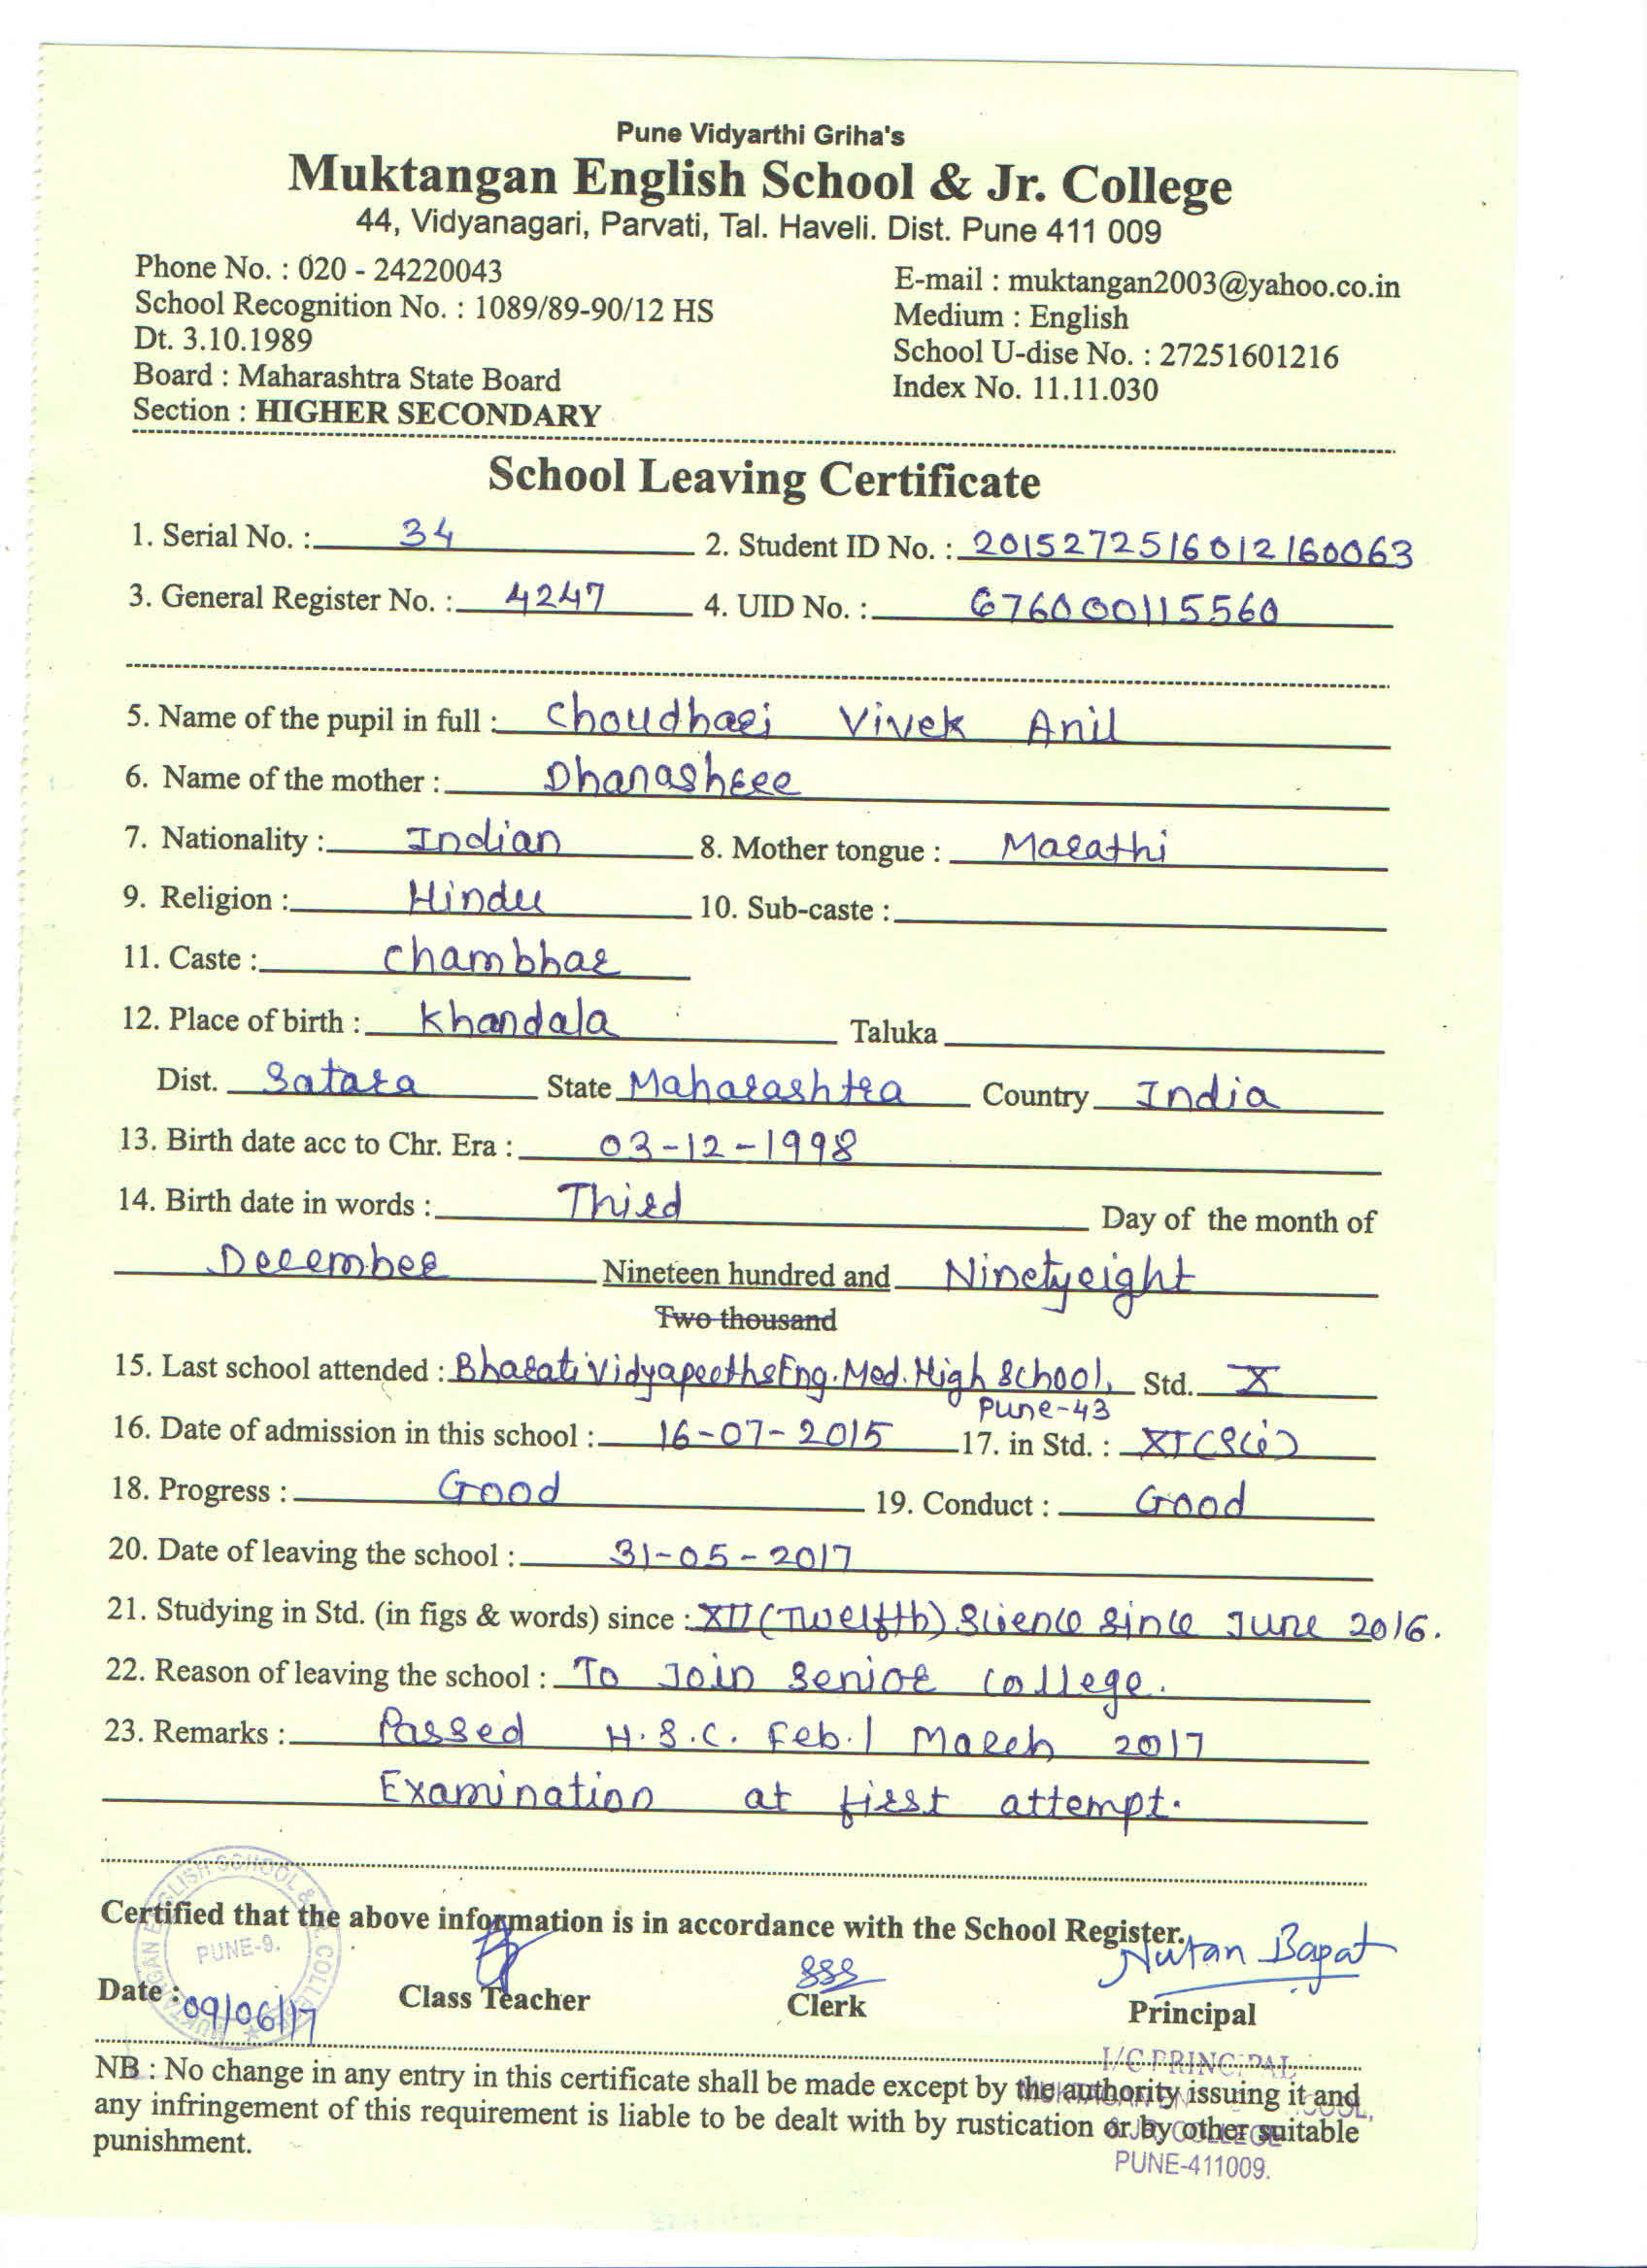 Pune Vidyarthi Griha's
Muktangan English School & Jr. College
44, Vidyanagari, Parvati, Tal. Haveli. Dist. Pune 411 009
Phone No. : 020 - 24220043 E-mail : muktangan2003@yahoo.co.in
School Recognition No. : 1089/89-90/12 HS Medium : English
Dt. 3.10.1989 School U-dise No. : 27251601216
Board : Maharashtra State Board Index No. 11.11.030
Section : HIGHER SECONDARY
School Leaving Certificate
1. Serial No. : 34 2. Student ID No. : 2015272516012160063
3. General Register No. : 4247 4. UID No. : 676000115560
5. Name of the pupil in full : Choudhari Vivek Anil
6. Name of the mother : Dhanashree
7. Nationality : Indian 8. Mother tongue : Marathi
9. Religion : Hindu 10. Sub-caste :
11. Caste : Chambhar
12. Place of birth : Khandala Taluka
Dist. Satara State Maharashtra Country India
13. Birth date acc to Chr. Era : 03-12-1998
14. Birth date in words : Third Day of the month of
December Nineteen hundred and Ninetyeight
Two thousand
15. Last school attended : Bharati Vidyapeeths Eng. Med. High School, Std. X
Pune-43
16. Date of admission in this school : 16-07-2015 17. in Std. : XI (Sci)
18. Progress : Good 19. Conduct : Good
20. Date of leaving the school : 31-05-2017
21. Studying in Std. (in figs & words) since : XII (Twelfth) Science since June 2016.
22. Reason of leaving the school : To Join Senior College.
23. Remarks : Passed H.S.C. Feb./ March 2017
Examination at first attempt.
Certified that the above information is in accordance with the School Register.
PUNE-9.
Nutan Bapat
Date : 09/06/17 Class Teacher Clerk Principal
I/C PRINCIPAL
NB : No change in any entry in this certificate shall be made except by the authority issuing it and
any infringement of this requirement is liable to be dealt with by rustication or by other suitable
punishment.
PUNE-411009.